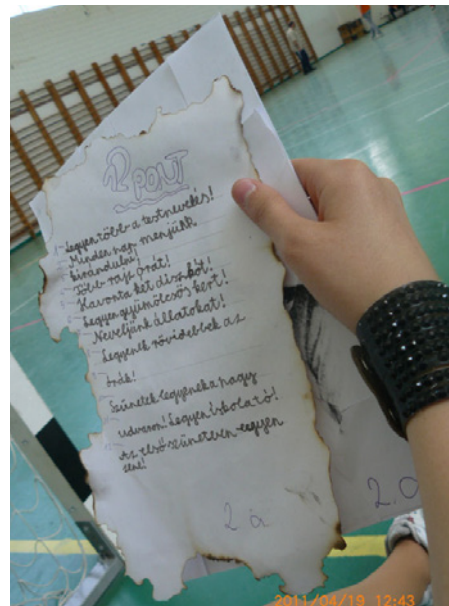 12 PONT
Legyen több a testnevelés!
Minden nap menjünk
kirándulni!
Több rajz órát!
Havonta két diszkót!
Legyen gyümölcsös kert!
Neveljünk állatokat!
Legyenek rövidebbek az
órák!
Szünetek legyenek a nagy
udvaron! Legyen iskola tó!
Az első szünetben legyen
zene!
2 a
2.0
2011/04/19 12:43